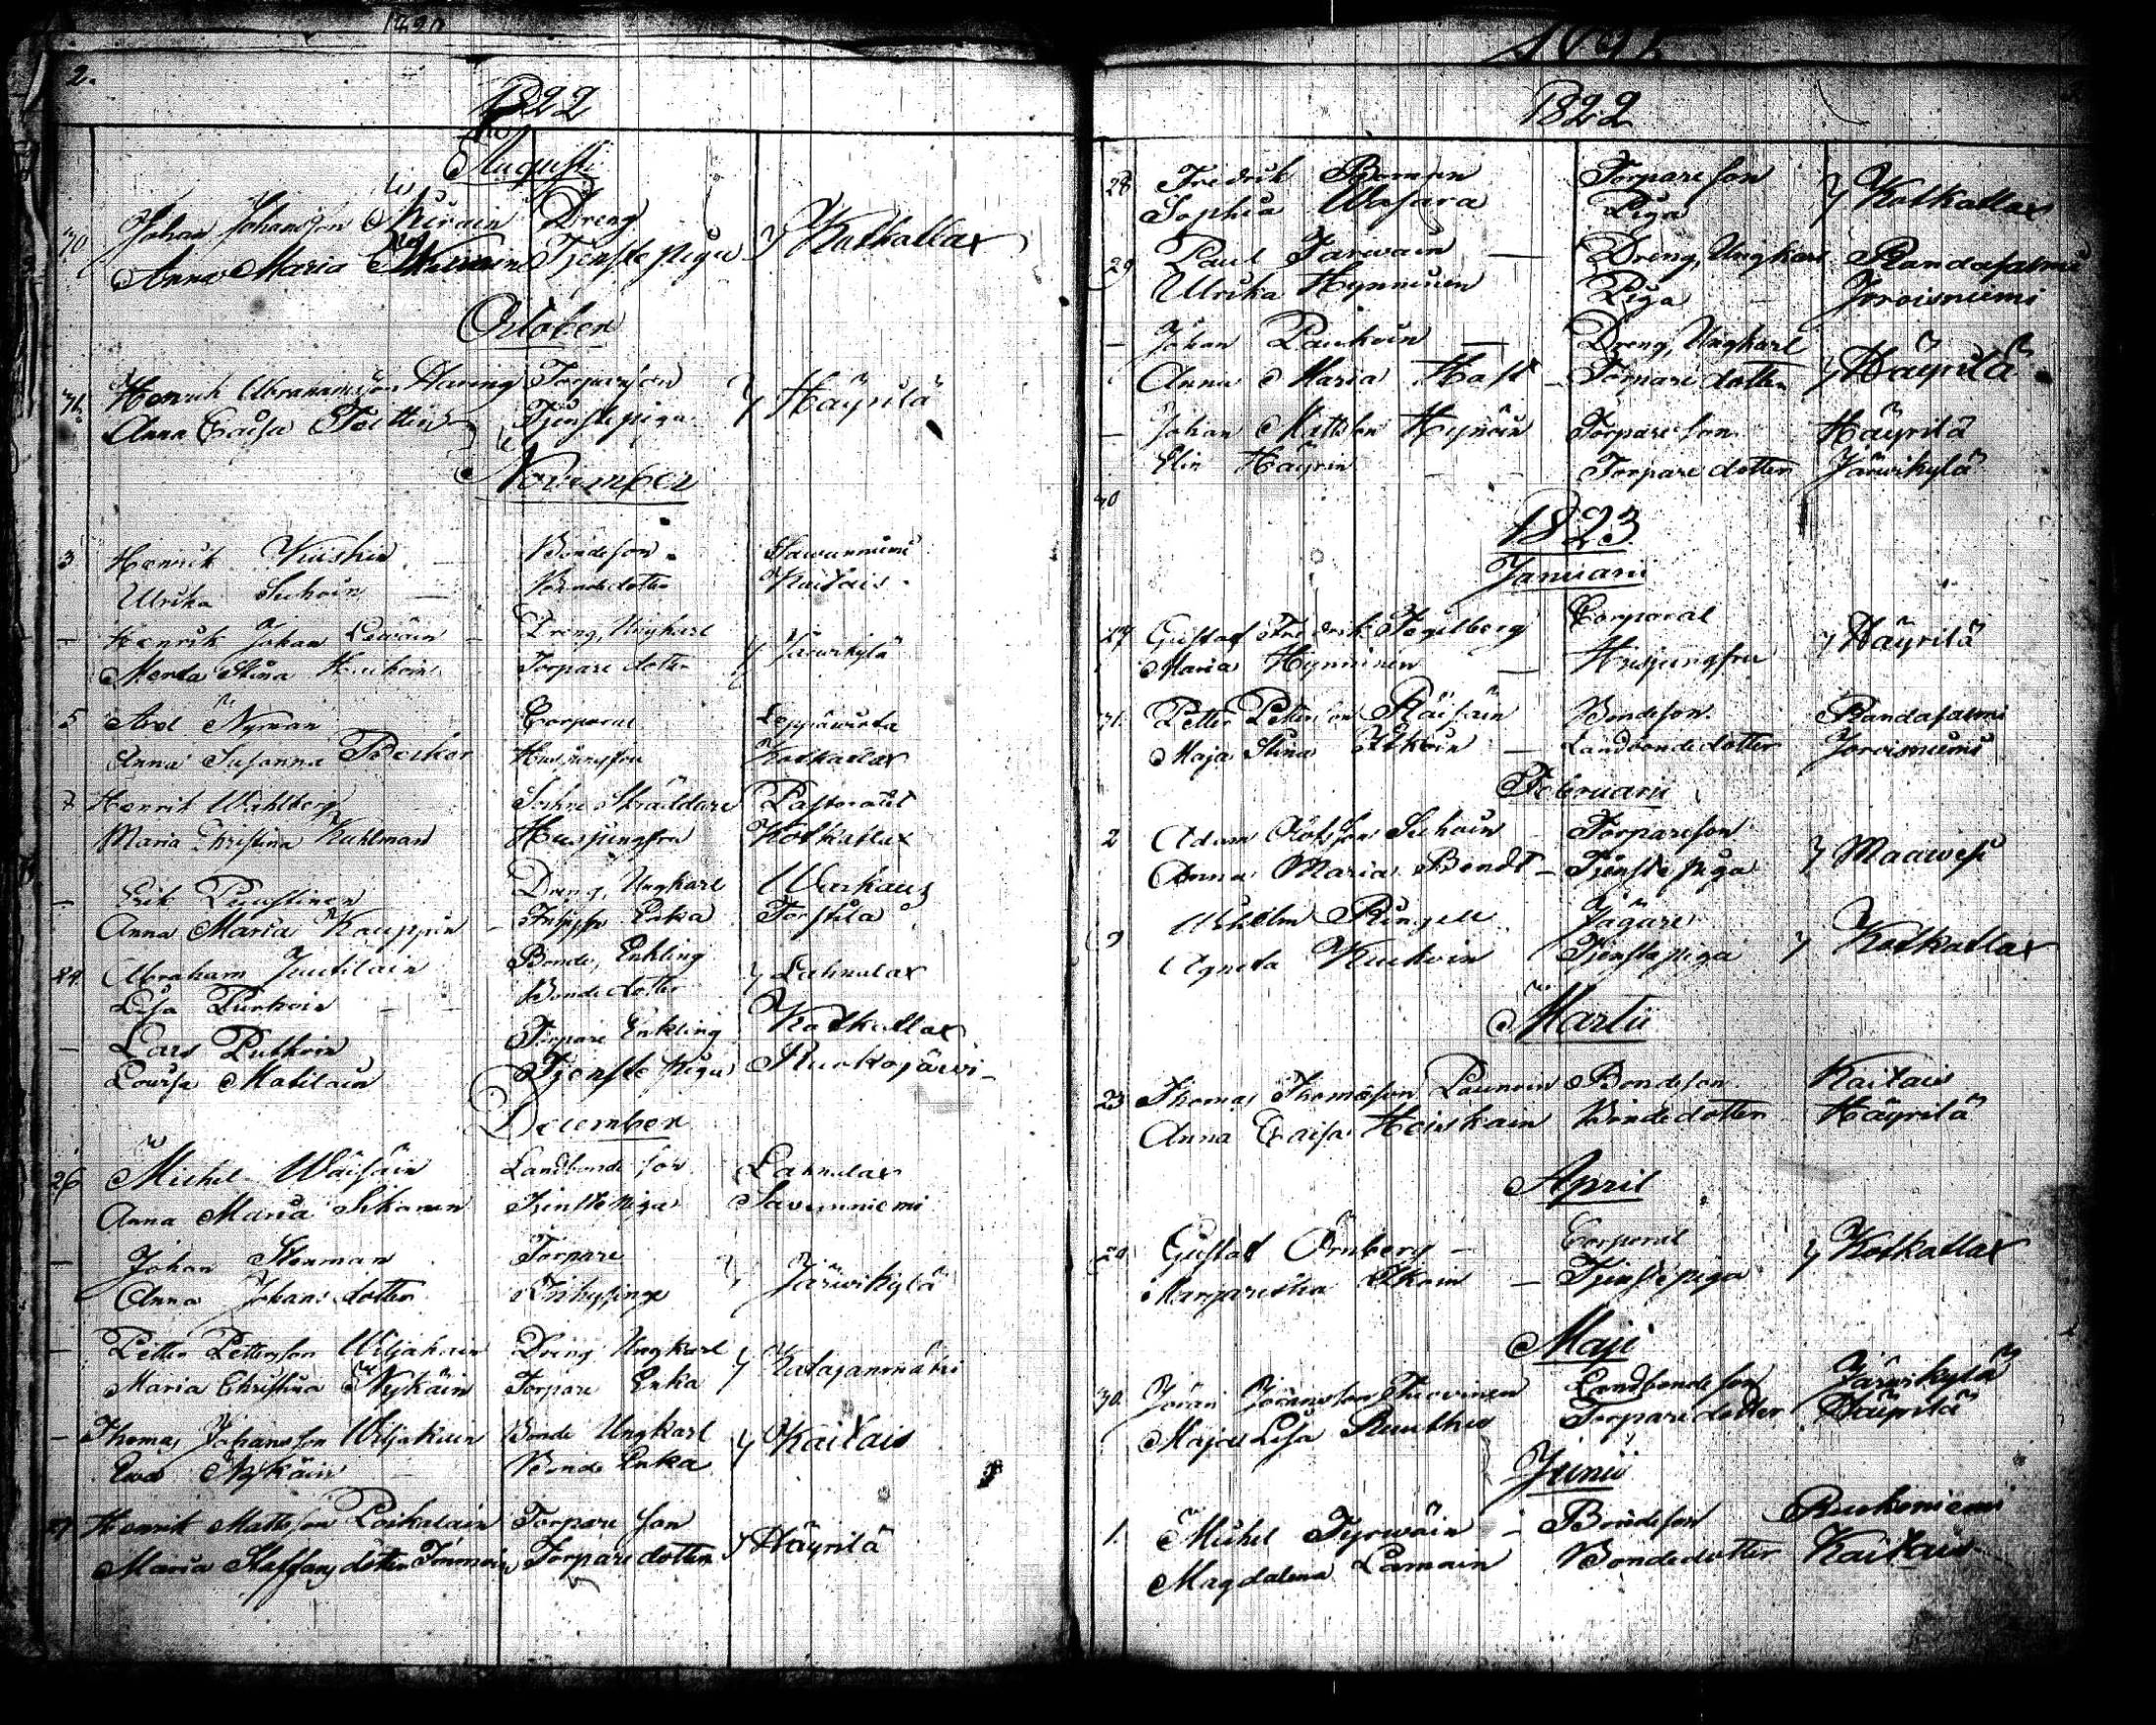 2.
1822
Augusti
Johan Johansson Dreng
Anna Maria Tjenstepiga } Kotkatlax
October
31. Henrik Abrahamsson Haring Torpareson
Anna Caisa Tjenstepiga } Häyrilä
November
3 Henrik Kiiskin Bondeson Sawunniemi
Ulrika Suhoin Bondedotter Kaitais
— Henrik Johan Dreng, Ungkarl
Marta Stina Torpare dotter } Järwikylä
5 Axel Nyman Corporal Leppäwirta
Anna Susanna Becker Husjungfru Kotkatlax
7 Henrik Wahlberg Sockne Skräddare Pastoratet
Maria Christina Kuhlman Husjungfru Kotkatlax
— Erik Puustinen Dreng, Ungkarl Warkaus
Anna Maria Kauppin Enka Torstila
29. Abraham Juutilain Bonde, Enkling
Lisa Purhoin Bondedotter } Lahnalax
— Lars Putkoin Torpare Enkling Kotkatlax
Lovisa Matilain Tjenste piga Ruokojärwi
December
26 Michel Wäisäin Landbonde son Lahnalax
Anna Maria Sikanen Tjenstepiga Savunniemi
— Johan Stenman Torpare
Anna Johans dotter Inhysinge } Järwikylä
— Petter Pettersson Wiljakain Dreng Ungkarl
Maria Christina Nykäin Torpare Enka } Katajanmäki
— Thomas Johansson Wiljakain Bonde Ungkarl
Ewa Nykäin Bonde Enka } Kaitais
27. Henrik Mattsson Poikalain Torpare son
Maria Staffans dotter Torpare dotter } Häyrilä
1822
28 Fredrik Boman Torpare son
Sophia Wasara Piga } Kotkatlax
29 Paul Tarwain — Dreng, Ungkarl Randasalmi
Ulrika Hynninen Piga Joroisniemi
— Johan Paukoin — Dreng, Ungkarl
Anna Maria Hast Torpare dotter } Häyrilä
— Johan Mattsson Hynöin Torpare son Häyrilä
Elin Häyrin Torpare dotter Järwikylä
30
1823
Januarii
Gustaf Fredrik Fogelberg Corporal
Maria Hynninen — Husjungfru } Häyrilä
31. Petter Pettersson Räisäin Bondeson Randasalmi
Maja Stina Itkoin — Landbondedotter Joroisniemi
Februarii
2 Adam Olofsson Suhoin Torpareson
Anna Maria Bendt — Tjenste piga } Maawesi
Wilhelm Ringell Jägare
Agneta Kuckoin Tjenstepiga } Kotkatlax
Martii
23 Thomas Thomasson Paunoin Bondeson Kaitais
Anna Caisa Heiskain Bondedotter Häyrilä
April
20 Gustaf Örnberg — Corporal
Margaretha Itkoin — Tjenstepiga } Kotkatlax
Maji
30. Jöran Jöransson Landbonde son Järwikylä
Maja Lisa Torpare dotter Häyrilä
Junii
1. Michel Tyrwäin — Bondeson
Magdalena Lamain Bondedotter Kaitais